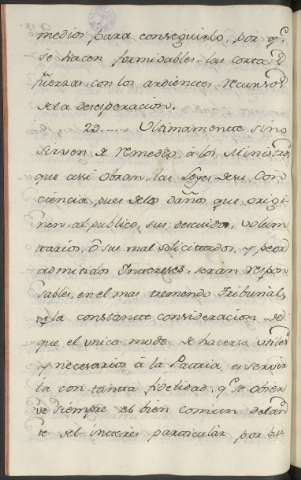 medios para conseguirlo, por q.e
se hacen formidables las cortas
fuerzas con los ardientes recursos
de la desesperacion.
22..... Ultimamente sino
sirven de remedio, à los Ministros
que assi obran, las Leyes de su Con
ciencia, pues de los daños que origi
nen al publico, sus descuidos, volun
tarios, ô sus mal solicitados, y peor
admitidos Intereses, seràn respon
sables, en el mas tremendo Tribunal,
la constante consideracion de
que el unico modo, de hacerse utiles
y necesarios à la Patria, es servir
la con tanta fidelidad, q.e se
ve siempre el bien comun delan
te del interes particular, por